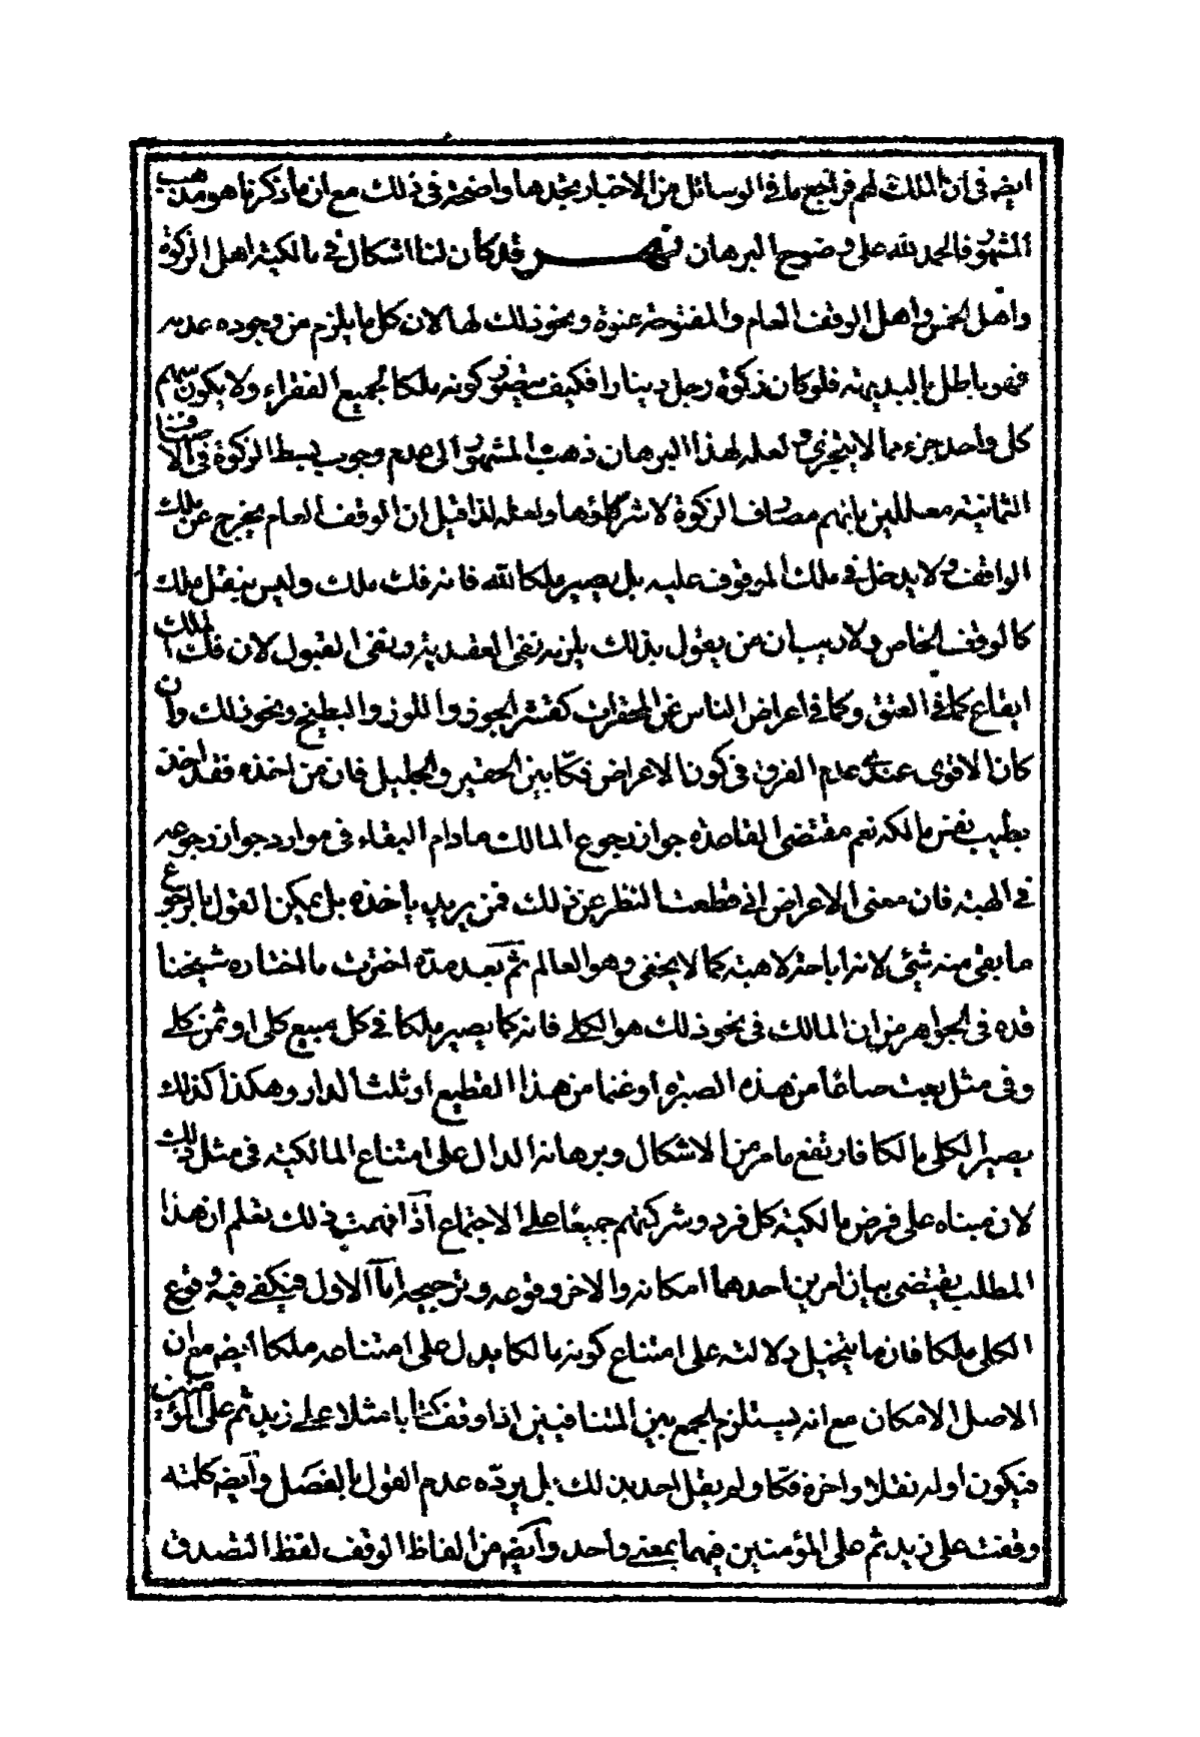 ايضه فى ان الملك لهم فراجع ما فى الوسائل من الاخبار يجدها واضحة فى ذلك مع ان ما ذكرنا هو مذهب
المشهور فالحمد لله على وضوح البرهان قد كان لنا اشكال فى مالكية اهل الزكوة
واهل الخمس واهل الوقف العام والمفتوحة عنوة ونحو ذلك لها لان كل ما يلزم من وجوده عدمه
فهو باطل بالبديهة فلو كان زكوة رجل دينارا فكيف يتصور كونه ملكا لجميع الفقراء ولا يكون سهم
كل واحد جزء مما لا يتجزى و لعله لهذا البرهان ذهب المشهور الى عدم وجوب بسط الزكوة فى الاصناف
الثمانية معللين بانهم مصارف الزكوة لا شركاؤها ولعله لذا قيل ان الوقف العام يخرج عن ملك
الواقف ولا يدخل فى ملك الموقوف عليه بل يصير ملكا لله فانه فك ملك وليس بنقل ملك
كالوقف الخاص ولا ريب ان من يقول بذلك يلزمه نفى العقدية ونفى القبول لان فك الملك
ايقاع كما فى العتق وكما فى اعراض الناس عن المحقرات كقشر الجوز واللوز والبطيخ ونحو ذلك وان
كان الاقوى عندى عدم الفرق فى كون الاعراض فكا بين الحقير والجليل فان من اخذه فقد اخذ
بطيب نفس مالكه نعم مقتضى القاعدة جواز رجوع المالك ما دام البقاء فى موارد جواز رجوعه
فى الهبة فان معنى الاعراض انى قطعت النظر عن ذلك فمن يريد ياخذه بل يمكن القول بالرجوع
ما بقى منه شئى لانه اباحة لا هبة كما لا يخفى وهو العالم ثم بعد مدة اخترت ما اختاره شيخنا
قده فى الجواهر من ان المالك فى نحو ذلك هو الكلى فانه كما يصير ملكا فى كل مبيع كلى او ثمن كلى
وفى مثل بعت صاعا من هذه الصبرة او غنما من هذا القطيع او ثلث الدار وهكذا كذلك
يصير الكلى مالكا فارتفع ما مر من الاشكال وبرهانه الدال على امتناع المالكية فى مثل ذلك
لان مبناه على فرض مالكية كل فرد وشركتهم جميعا على الاجتماع اذا فهمت ذلك تعلم ان هذا
المطلب يقتضى بيان امرين احدهما امكانه والاخر وقوعه وترجيحه اما الاول فيكفى فيه وقوع
الكلى ملكا فان ما يتخيل دلالته على امتناع كونه مالكا يدل على امتناعه ملكا ايضه مع ان
الاصل الامكان مع انه يستلزم الجمع بين المتنافيين اذا وقف كتابا مثلا على زيد ثم على المؤمنين
فيكون اوله نقلا واخره فكا ولم يقل احد بذلك بل يرده عدم القول بالفصل وايضه كلمته
وقفت على زيد ثم على المؤمنين فيهما بمعنى واحد وايضه من الفاظ الوقف لفظ التصدق